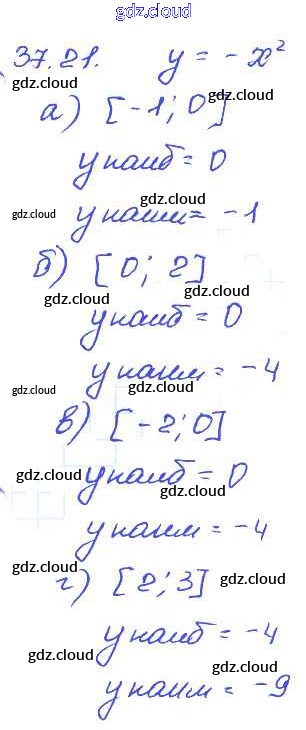 gdz.cloud
37.21. y = -x²
gdz.cloud
а) [-1; 0]
gdz.cloud
yнаиб = 0
gdz.cloud
gdz.cloud yнаим = -1
б) [0; 2]
gdz.cloud
yнаиб = 0
gdz.cloud
yнаим = -4
gdz.cloud gdz.cloud
в) [-2; 0]
yнаиб = 0
gdz.cloud gdz.cloud
yнаим = -4
gdz.cloud
г) [2; 3] gdz.cloud
yнаиб = -4
gdz.cloud gdz.cloud
yнаим = -9
gdz.cloud